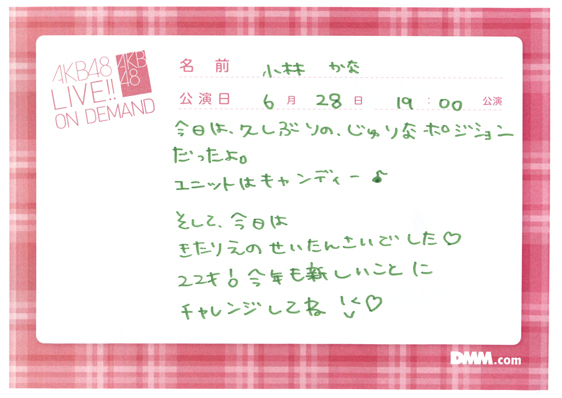 AKB48
LIVE!!
ON DEMAND
AKB
48
名 前 小林 かな
公演日 6月 28日 19:00 公演
今日は、久しぶりの、じゅりなポジション
だったよ。
ユニットはキャンディー♪
そして、今日は
きたりえのせいたんさいでした♡
22才!今年も新しいことに
チャレンジしてね !< ♡
DMM.com